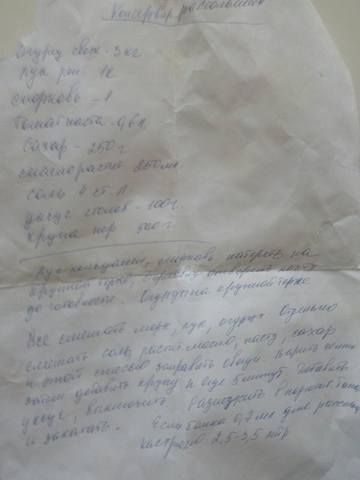 Консервир рассольника
Огурцы свеж - 3 кг
Лук реп 1к
морковь - 1
Томат паста - 0,6 к
Сахар - 250 г
масло растит 250 мл.
Соль 4 ст. л.
уксус столов - 100 г.
Крупа пер 500 г.
Лук кольцами, морковь натереть на
крупной терке, Перловку отварить почти
до готовности. Огурцы на крупной терке.
Все смешать морк, лук, огурцы. Отдельно
смешать соль, растит масло, пасту, сахар
и этой смесью заправить овощи. Варить
затем добавить крупу и еще 5 минут. Добавить
уксус, выключить. Разложить в банки
и закатать. Если банка 0,7
кастрюлю 2,5-3,5 литр